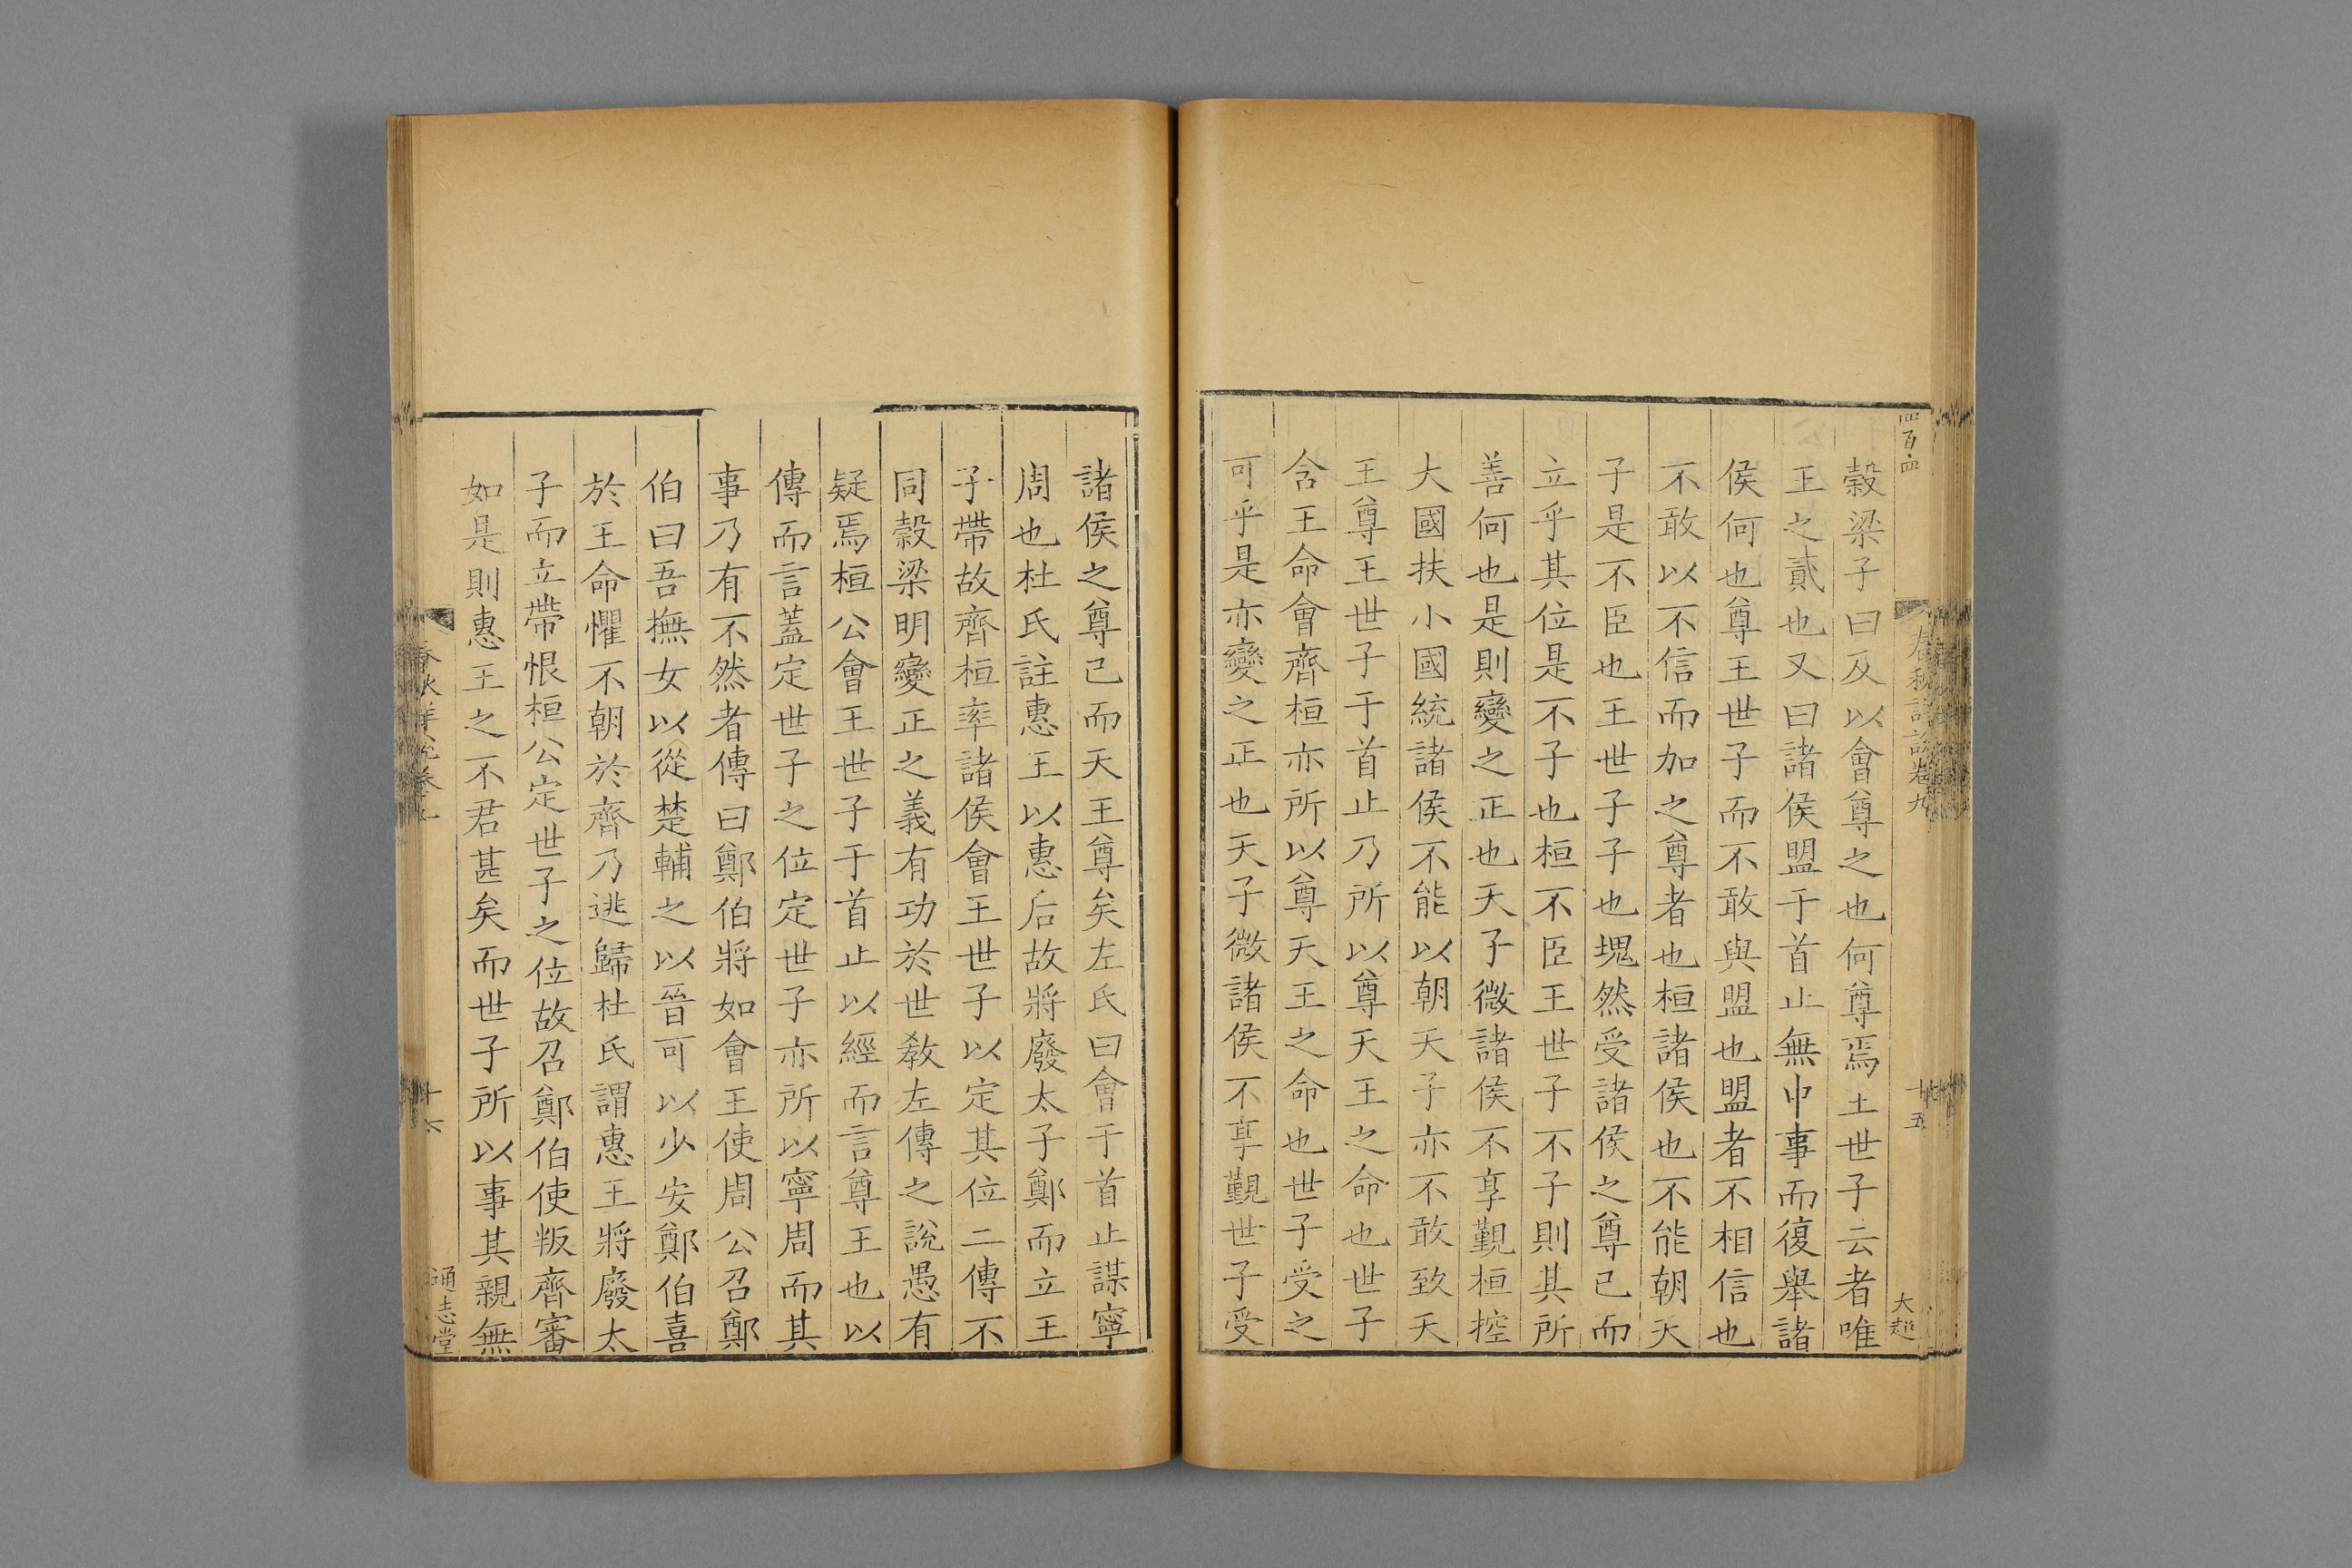 穀梁子曰及以會尊之也何尊焉王世子云者唯
王之貳也又曰諸侯盟于首止無中事而復舉諸
侯何也尊王世子而不敢與盟也盟者不相信也
不敢以不信而加之尊者也桓諸侯也不能朝天
子是不臣也王世子子也塊然受諸侯之尊己而
立乎其位是不子也桓不臣王世子不子則其所
善何也是則變之正也天子微諸侯不享覲桓控
大國扶小國統諸侯不能以朝天子亦不敢致天
王尊王世子于首止乃所以尊天王之命也世子
含王命會齊桓亦所以尊天王之命也世子受之
可乎是亦變之正也天子微諸侯不享覲世子受
十五
諸侯之尊己而天王尊矣左氏曰會于首止謀寧
周也杜氏註惠王以惠后故將廢太子鄭而立王
子帶故齊桓率諸侯會王世子以定其位二傳不
同穀梁明變正之義有功於世教左傳之說愚有
疑焉桓公會王世子于首止以經而言尊王也以
傳而言蓋定世子之位定世子亦所以寧周而其
事乃有不然者傳曰鄭伯將如會王使周公召鄭
伯曰吾撫女以從楚輔之以晉可以少安鄭伯喜
於王命懼不朝於齊乃逃歸杜氏謂惠王將廢太
子而立帶恨桓公定世子之位故召鄭伯使叛齊審
如是則惠王之不君甚矣而世子所以事其親無
十六
通志堂